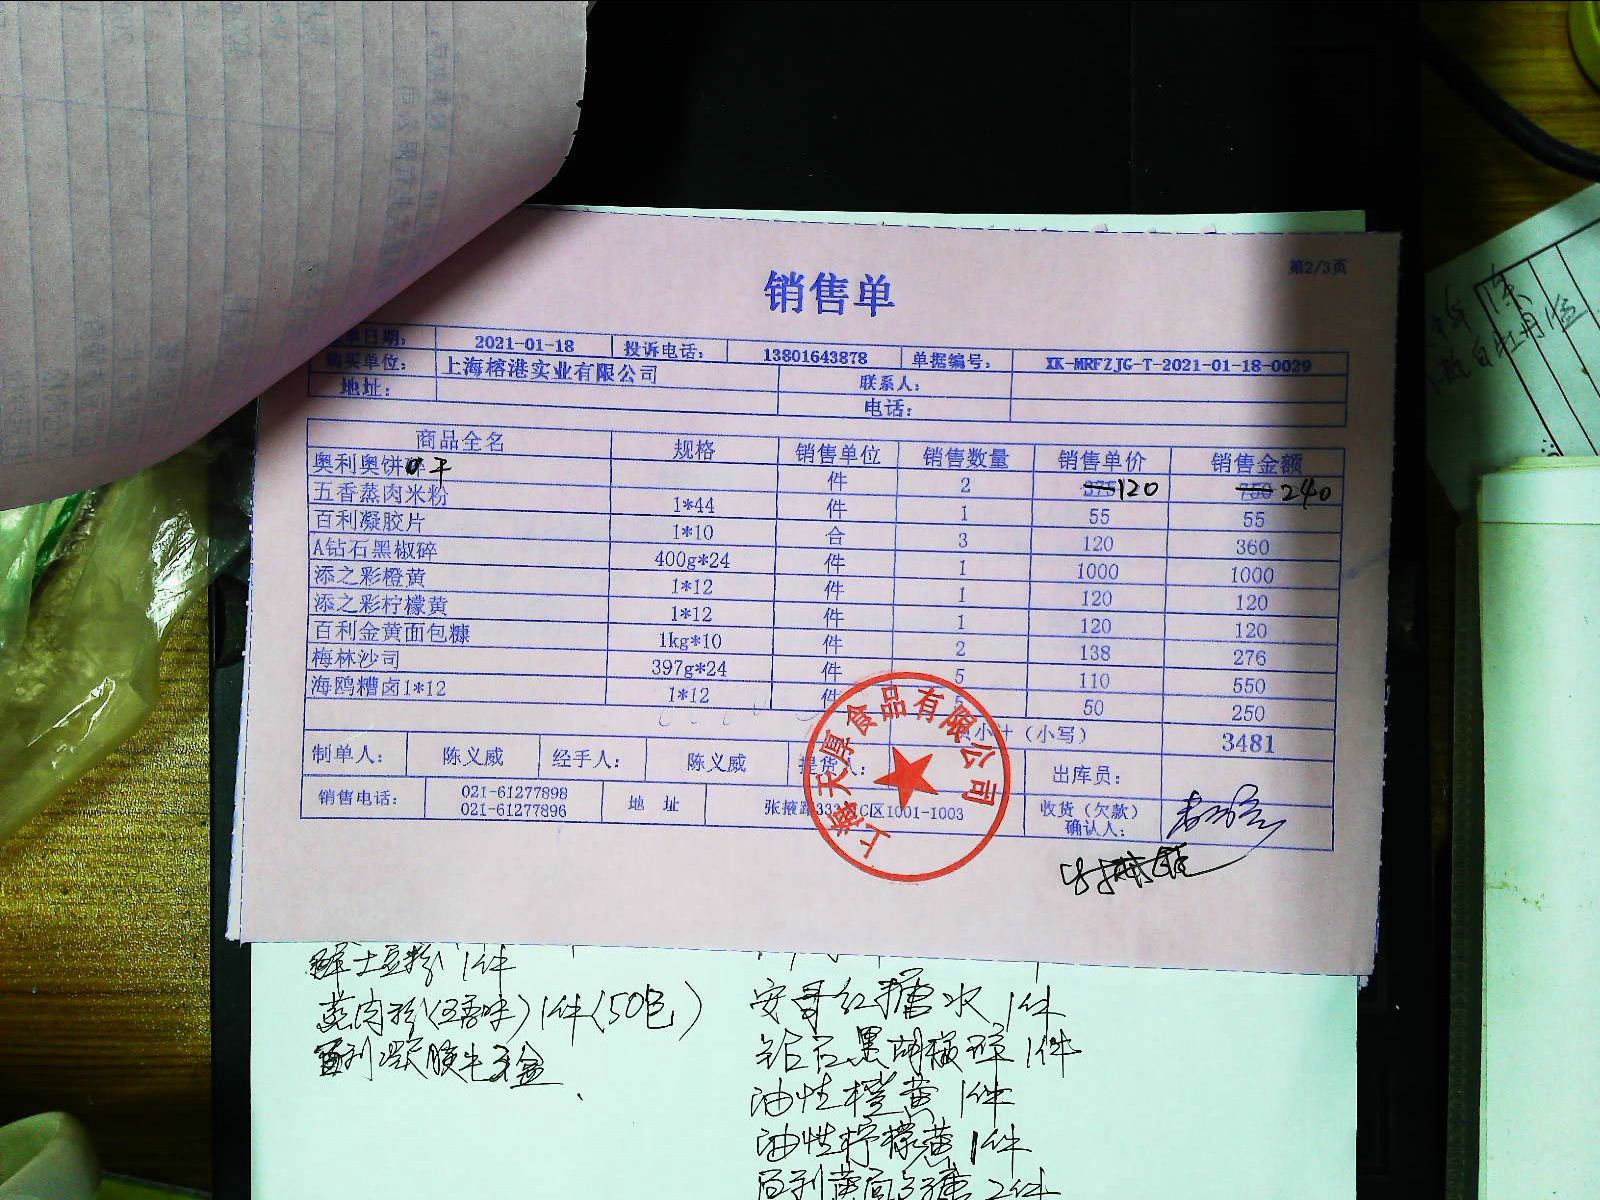 第2/3页
销售单
单日期： 2021-01-18 投诉电话： 13801643878 单据编号： XK-MRFZJG-T-2021-01-18-0029
购买单位： 上海榕港实业有限公司 联系人：
地址： 电话：
商品全名 规格 销售单位 销售数量 销售单价 销售金额
奥利奥饼干 件 2 375 120 750 240
五香蒸肉米粉 1*44 件 1 55 55
百利凝胶片 1*10 合 3 120 360
A钻石黑椒碎 400g*24 件 1 1000 1000
添之彩橙黄 1*12 件 1 120 120
添之彩柠檬黄 1*12 件 1 120 120
百利金黄面包糠 1kg*10 件 2 138 276
梅林沙司 397g*24 件 5 110 550
海鸥糟卤1*12 1*12 件 5 50 250
小计（小写） 3481
制单人： 陈义威 经手人： 陈义威 提货人： 出库员：
销售电话： 021-61277898 021-61277896 地 址 张掖路333 C区1001-1003 收货（欠款）确认人：
上海天厚食品有限公司
土豆粉 1件
蒸肉粉(五香味) 1件(50包)
百利凝胶片 3盒
安哥红糖水 1件
钻石黑胡椒碎 1件
油性橙黄 1件
油性柠檬黄 1件
百利黄面包糠 2件